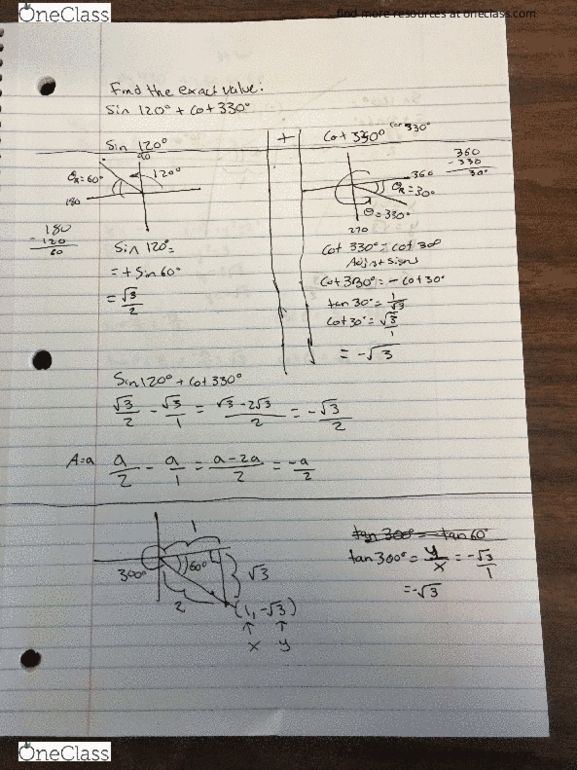 OneClass
find more resources at oneclass.com
Find the exact value:
Sin 120° + Cot 330°
Sin 120°
+
Cot 330°
90
120°
θR = 60°
180
180
- 120
60
360
- 330
30°
360
θR = 30°
θ = 330°
270
Sin 120° =
= + Sin 60°
= √3/2
Cot 330° = Cot 30°
Adjust Signs
Cot 330° = - Cot 30°
tan 30° = 1/√3
Cot 30° = √3/1
= -√3
Sin 120° + Cot 330°
√3/2 - √3/1 = √3-2√3/2 = -√3/2
A=a a/2 - a/1 = a-2a/2 = -a/2
1
300°
60°
√3
2
(1, -√3)
↑ ↑
x y
tan 300° = tan 60°
tan 300° = y/x = -√3/1
= -√3
OneClass